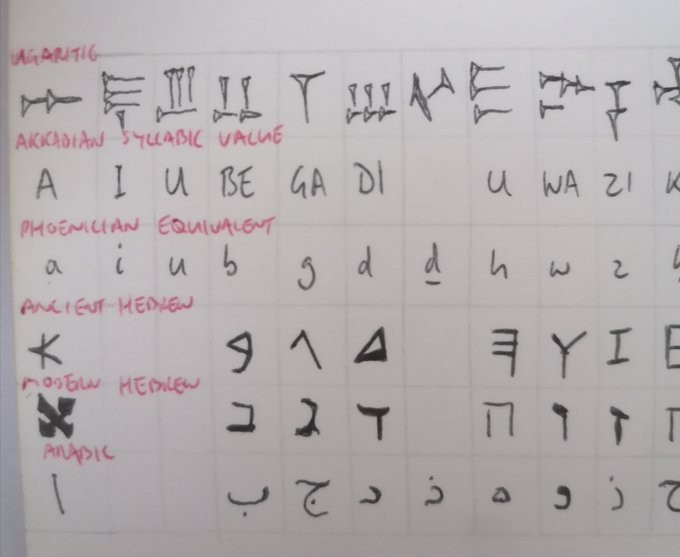 UGARITIC
𐎀 𐎛 𐎜 𐎁 𐎂 𐎄 𐎏 𐎅 𐎆 𐎇
AKKADIAN SYLLABIC VALUE
A I U BE GA DI U WA ZI K
PHOENICIAN EQUIVALENT
a i u b g d d h w z
ANCIENT HEBREW
𐤀 𐤁 𐤂 𐤃 𐤄 𐤅 𐤆
MODERN HEBREW
א ב ג ד ה ו ז
ARABIC
ا ب ج د ذ ه و ز ح